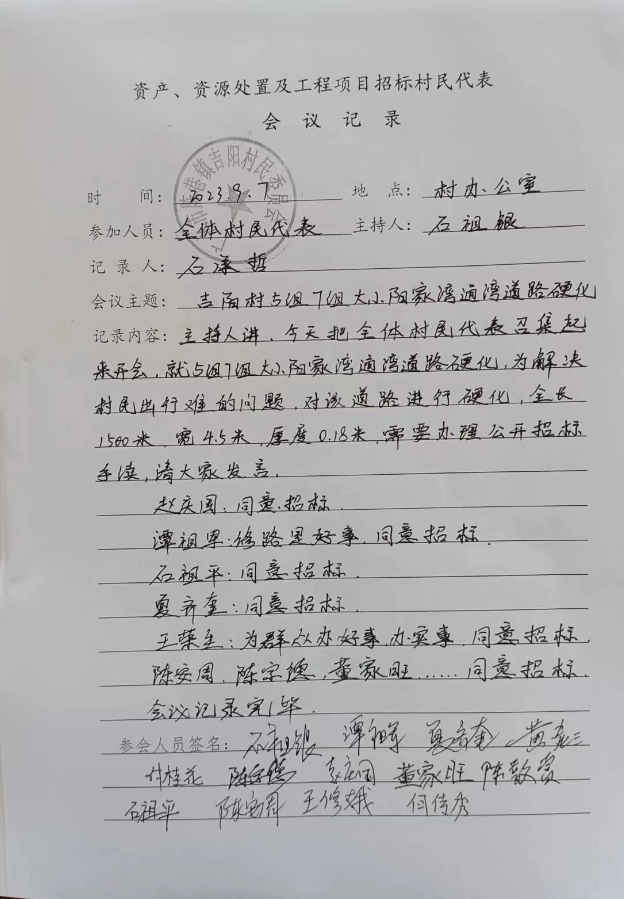 资产、资源处置及工程项目招标村民代表
会 议 记 录
镇吉阳村民委员会
时 间：2023.9.7 地 点：村办公室
参加人员：全体村民代表 主持人：石祖银
记 录 人：石深哲
会议主题：吉阳村5组7组大小阳家湾通湾道路硬化
记录内容：主持人讲，今天把全体村民代表召集起
来开会，就5组7组大小阳家湾通湾道路硬化，为解决
村民出行难的问题，对该道路进行硬化，全长
1500米，宽4.5米，厚度0.18米，需要办理公开招标
手续，请大家发言。
赵庆周：同意招标.
谭祖军：修路是好事，同意招标.
石祖平：同意招标.
夏齐奎：同意招标.
王荣全：为群众办好事，办实事，同意招标.
陈安周，陈宗德，董家旺……同意招标.
会议记录完毕.
参会人员签名：石祖银 谭祖军 夏齐奎 黄
付桂花 陈宗德 赵庆周 董家旺 陈
石祖平 陈安周 王修娥 何传秀